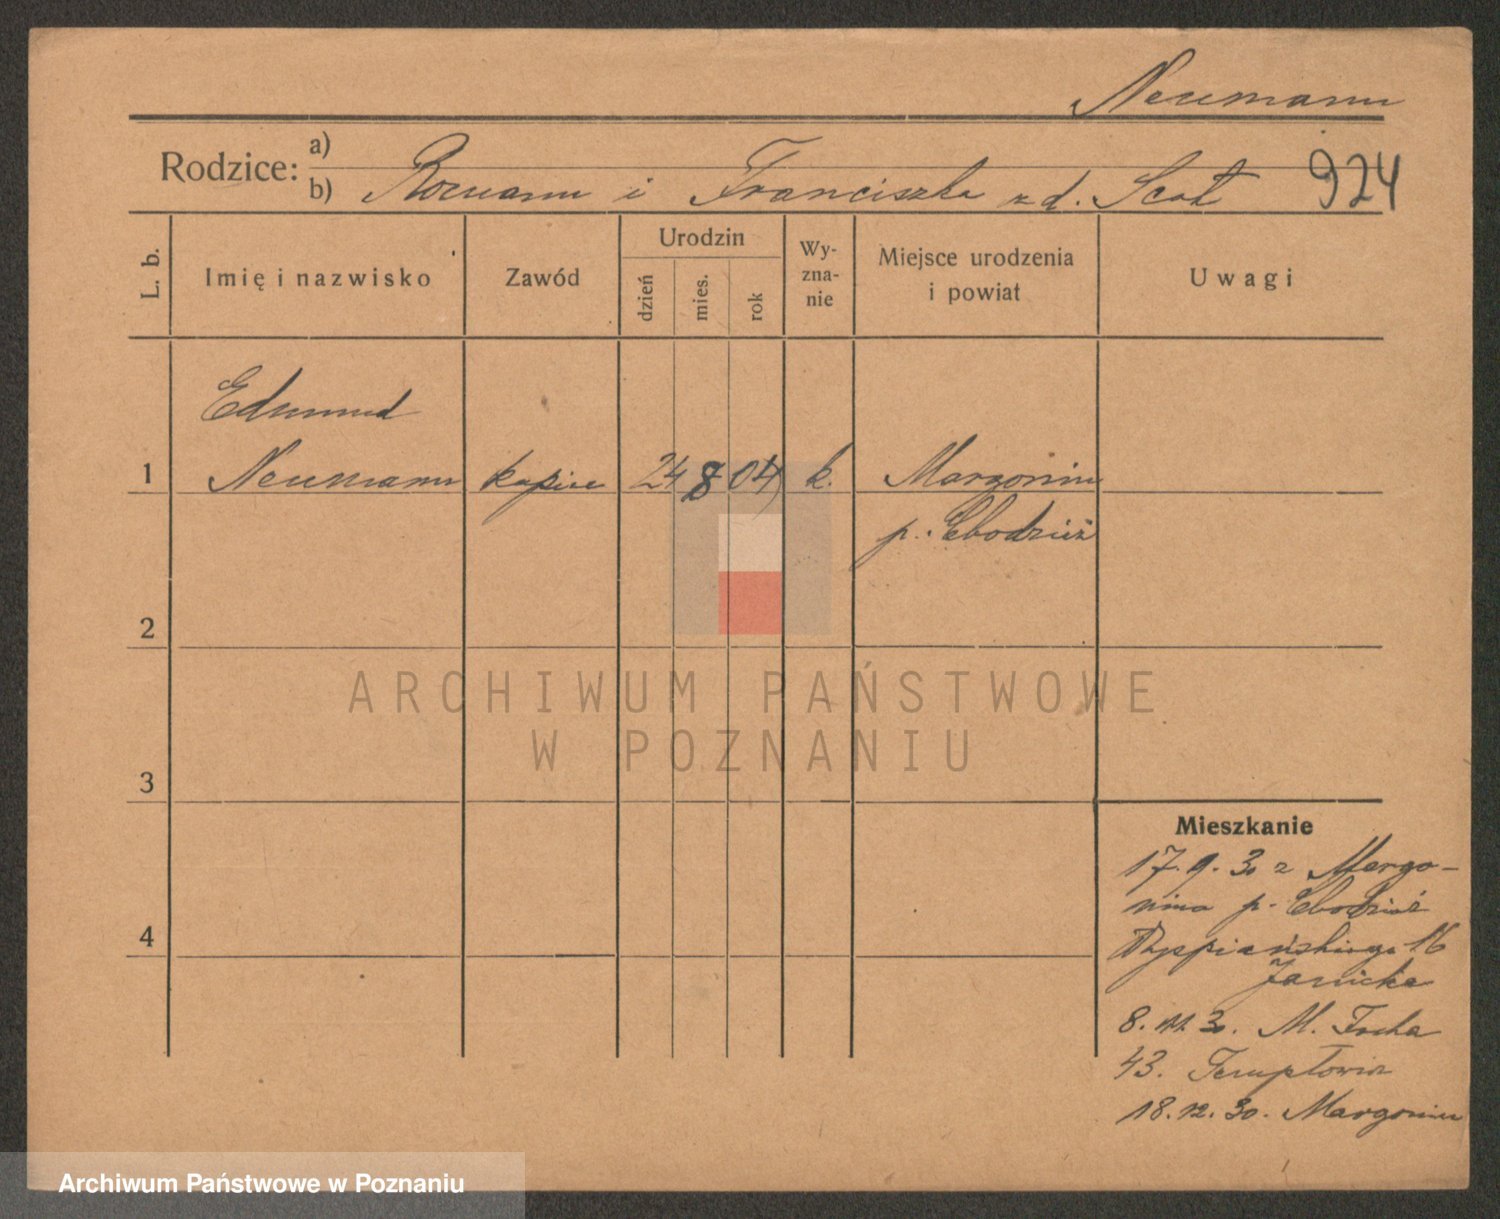 Neumann
Rodzice: a)
b) Roman i Franciszka z d. Szał 924
L. b. Imię i nazwisko Zawód Urodzin dzień mies. rok Wy-zna-nie Miejsce urodzenia i powiat Uwagi
Edmund
1 Neumann kupiec 24 8 04 k. Margonin
p. Chodzież
2
ARCHIWUM PAŃSTWOWE
W POZNANIU
3
Mieszkanie
17.9.30 z Margo-
nina p. Chodzież
4
Wyspiańskiego 16
Janicka
8.11.30. M. Focha
43.
18.12.30. Margonin
Archiwum Państwowe w Poznaniu